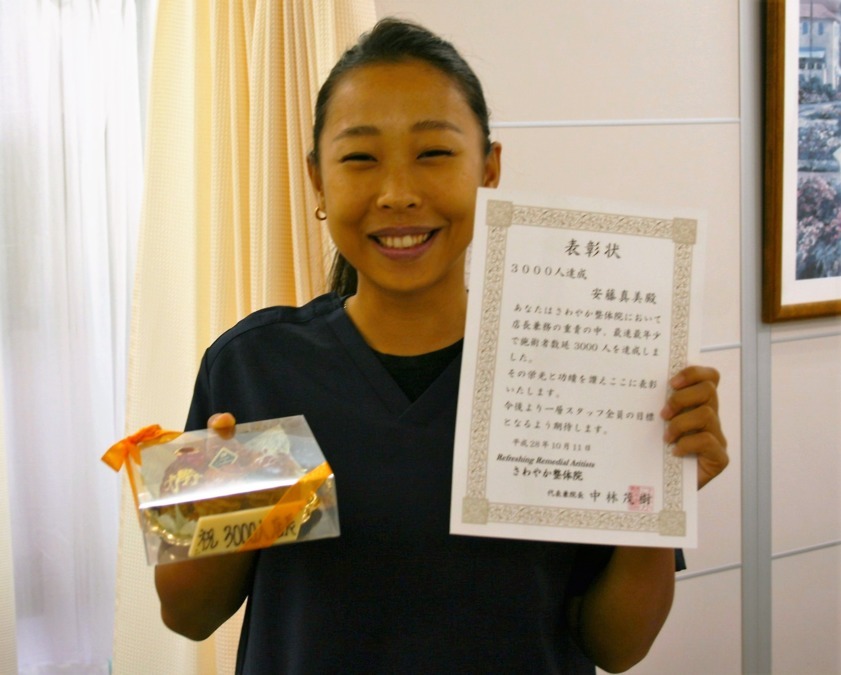 表彰状
3000人達成
安藤真美殿
あなたはさわやか整体院において
店長兼務の重責の中、最速最年少
で施術者数延3000人を達成しま
した。
その栄光と功績を讃えここに表彰
いたします。
今後より一層スタッフ全員の目標
となるよう期待します。
平成28年10月11日
Refreshing Remedial Artists
さわやか整体院
代表兼院長 中林茂樹
祝 3000人